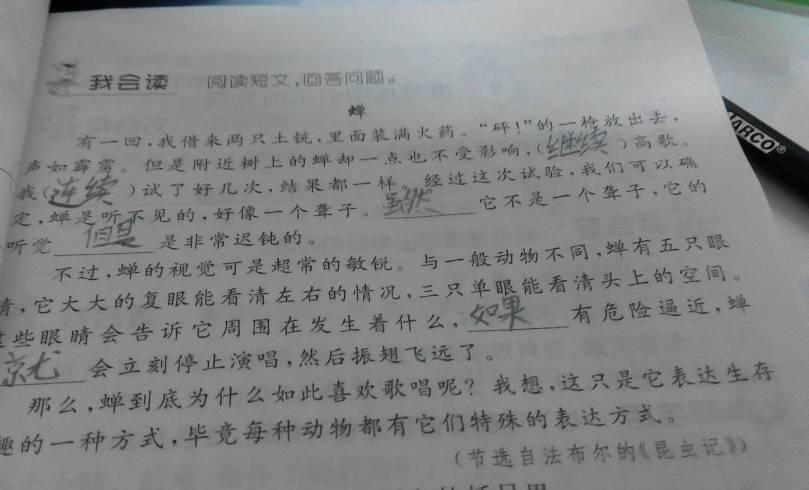 我会读 阅读短文,回答问题。
蝉
有一回,我借来两只土铳,里面装满火药。“砰!”的一枪放出去,
声如霹雳。但是附近树上的蝉却一点也不受影响,(继续)高歌。
我(连续)试了好几次,结果都一样。经过这次试验,我们可以确
定,蝉是听不见的,好像一个聋子。虽然它不是一个聋子,它的
听觉但是是非常迟钝的。
不过,蝉的视觉可是超常的敏锐。与一般动物不同,蝉有五只眼
睛,它大大的复眼能看清左右的情况,三只单眼能看清头上的空间。
这些眼睛会告诉它周围在发生着什么,如果有危险逼近,蝉
就会立刻停止演唱,然后振翅飞远了。
那么,蝉到底为什么如此喜欢歌唱呢?我想,这只是它表达生存
趣的一种方式,毕竟每种动物都有它们特殊的表达方式。
(节选自法布尔的《昆虫记》)
ARCO